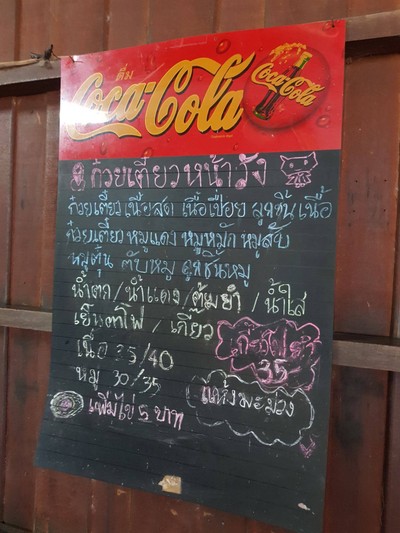 ดื่ม
Coca-Cola
Coca-Cola
ก๋วยเตี๋ยวหน้าวัง
ก๋วยเตี๋ยว เนื้อสด เนื้อเปื่อย ลูกชิ้นเนื้อ
ก๋วยเตี๋ยว หมูแดง หมูหมัก หมูสับ
หมูตุ๋น ตับหมู ลูกชิ้นหมู
น้ำตก / น้ำแดง / ต้มยำ / น้ำใส
เย็นตาโฟ / เกี๊ยว
35
เนื้อ 35/40
หมู 30/35
มะม่วง
เพิ่มไข่ 5 บาท